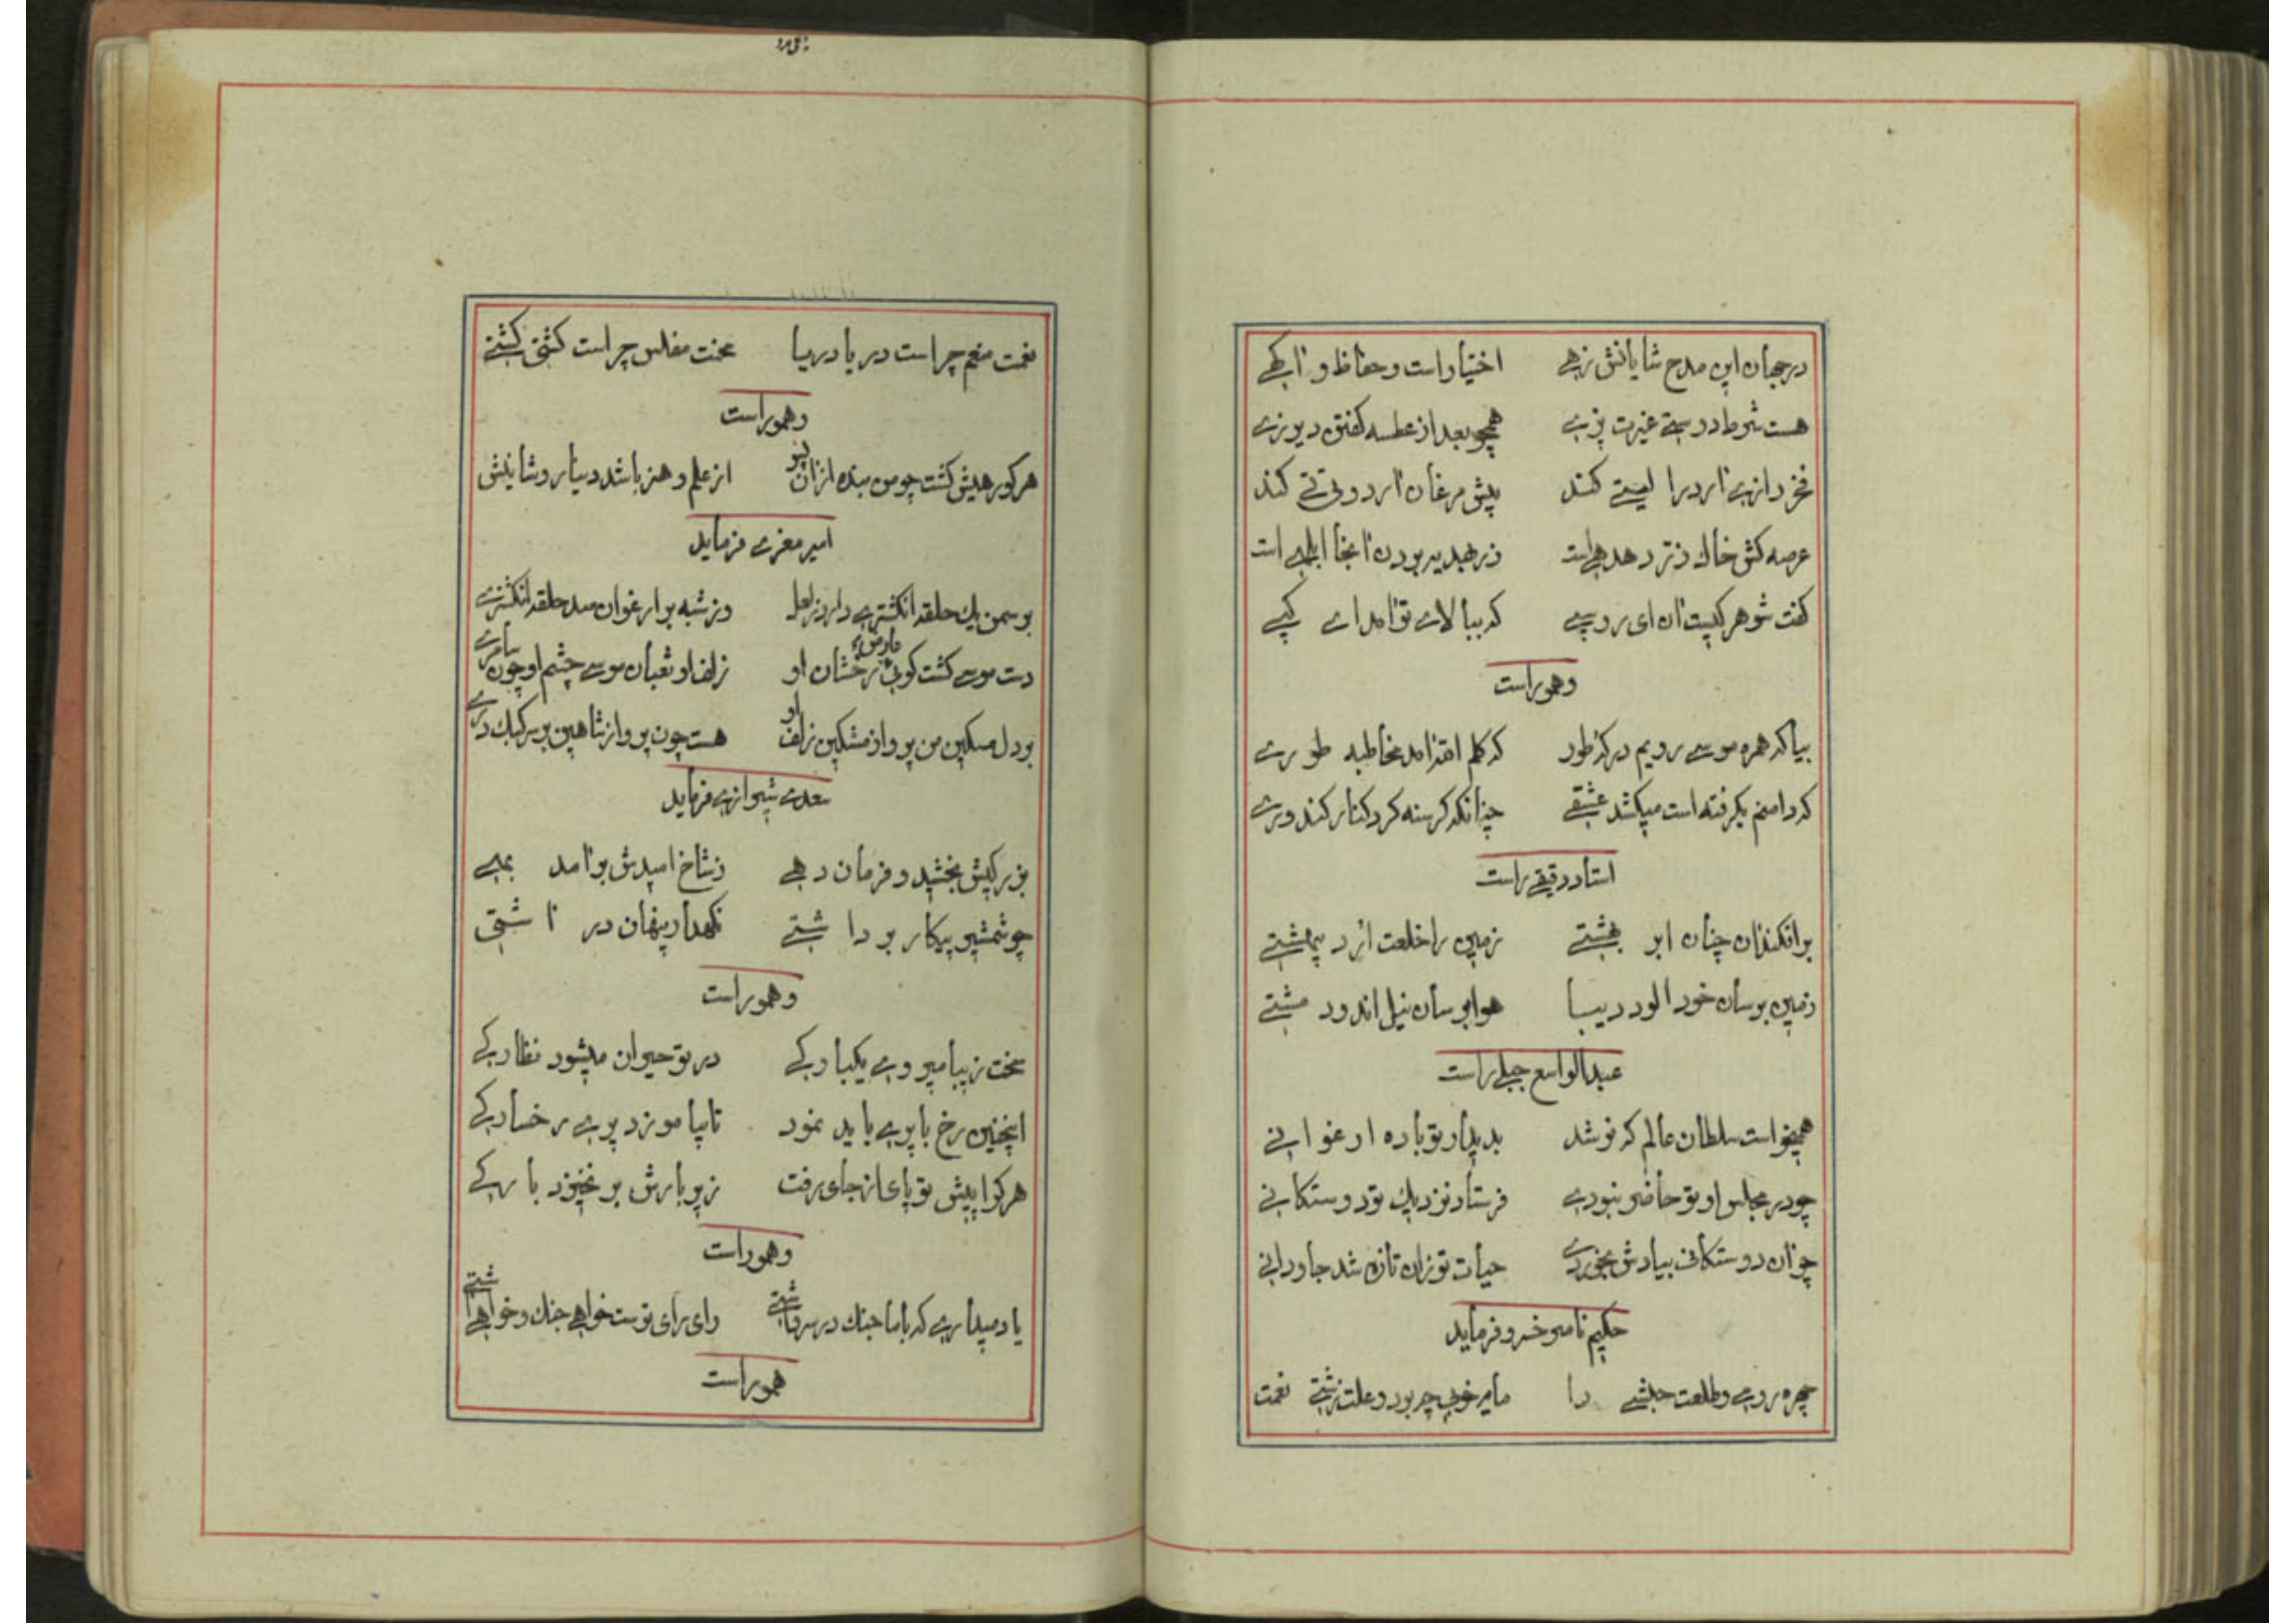 در جهان این مدح شایانش زهی اختیار است و حفاظ و
هست شرط دوستی غیرت پزی همچو بعد از عطسه گفتن دیرزی
پیش مرغان
عرصه کش خاک
گفت شوهر کیست آن ای روسپی که ببالای تو آمد ای
وهموراست
بیا که همره موسی رویم در که طور که کلم الله آمد مخاطبه طوری
که دامنم بگرفته است میکشد عشقی چنانکه گرسنه گرد کنار کندوری
استاد دقیقی راست
برافکند آن چنان ابر بهشتی زمین را خلعت اردیبهشتی
زمین برسان خون آلود دیبا هوا برسان نیل اندود مشتی
عبدالواسع جبلی راست
همیخواست سلطان عالم که نوشد بدیدار تو باده ارغوانی
چو در مجلس او تو حاضر نبودی فرستاد نزدیک تو دوستکانی
چو آن دوستکانی بیادش بخوردی حیات تو زان تازه شد جاودانی
حکیم ناصر خسرو فرماید
چهره رومی و طلعت حبشی را مایه خوبی چه بود و علت زشتی نعمت
نعمت منعم چراست دریا دریا محنت مفلس چراست کشتی کشتی
وهموراست
هر کور هیش گشت چو من بنده ازان پس از علم و هنر باشد دینار و شیانیش
امیر معزی فرماید
بر سمن یک حلقه انگشتری دارد ز لعل وز شبه بر ارغوان صد حلقه انگشتری
دست موسی گشت گویی عارض رخشان او زلف او ثعبان موسی چشم او چون سامری
بر دل مسکین من پرواز مشکین زلف او هست چون پرواز شاهین بر سر کبک دری
سعدی شیرازی فرماید
بزرگیش بخشید و فرمان دهی ز شاخ امیدش برآمد بهی
چو شمشیر پیکار برداشتی نگهدار پنهان در آشتی
وهموراست
سخت زیبا میروی یکبارگی در تو حیران میشود نظارگی
اینچنین رخ با پری باید نمود تا بیاموزد پری رخسارگی
هر کرا پیش تو پای از جای رفت زیر بارش بر نخیزد بارگی
وهموراست
یاد میداری که با ما جنک در سر داشتی رای رای توست خواهی جنک و خواهی آشتی
هموراست